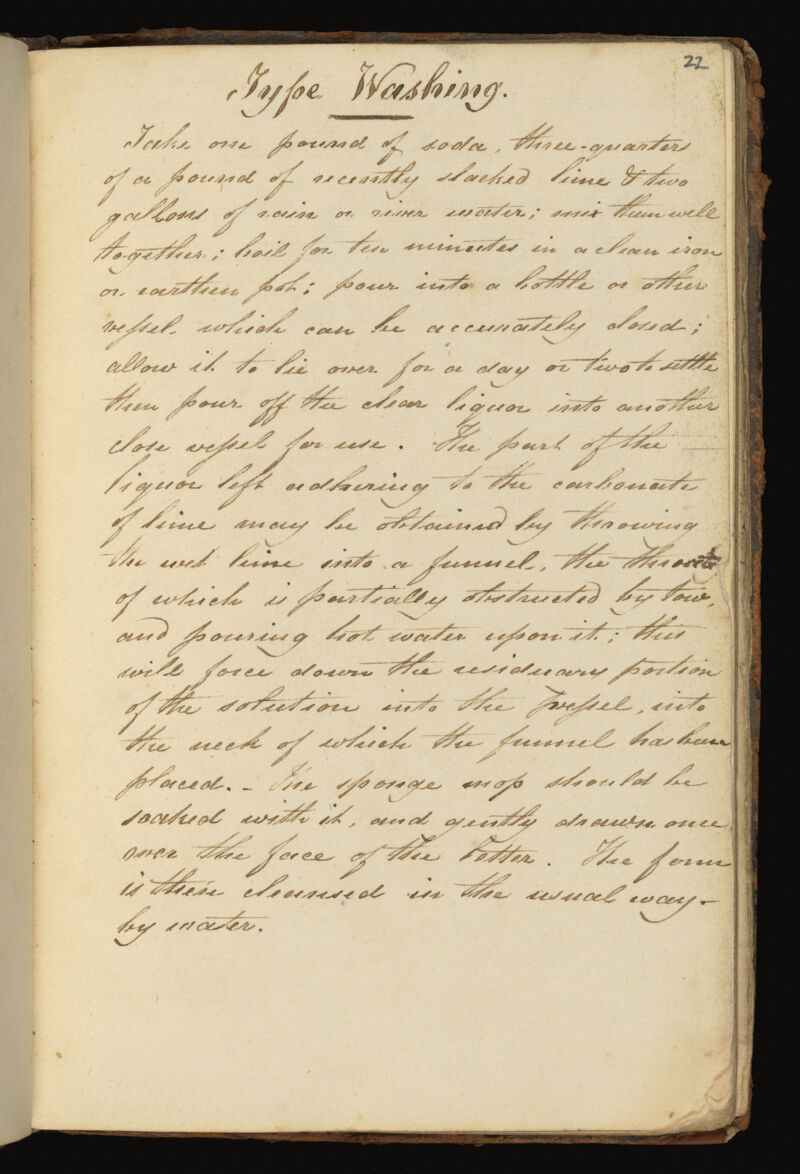 22
Type Washing.
Take one pound of soda, three-quarters
of a pound of recently slacked lime & two
gallons of rain or river water; mix them well
together; boil for ten minutes in a clean iron
or earthen pot; pour into a bottle or other
vessel which can be accurately closed;
allow it to lie over for a day or two to settle
then pour off the clear liquor into another
close vessel for use. The part of the
liquor left adhering to the carbonate
of lime may be obtained by throwing
the wet lime into a funnel, the throat
of which is partially obstructed by tow,
and pouring hot water upon it; this
will force down the residuary portion
of the solution into the vessel, into
the neck of which the funnel has been
placed. - The sponge mop should be
soaked with it, and gently drawn once
over the face of the Letter. The form
is then cleansed in the usual way -
by water.